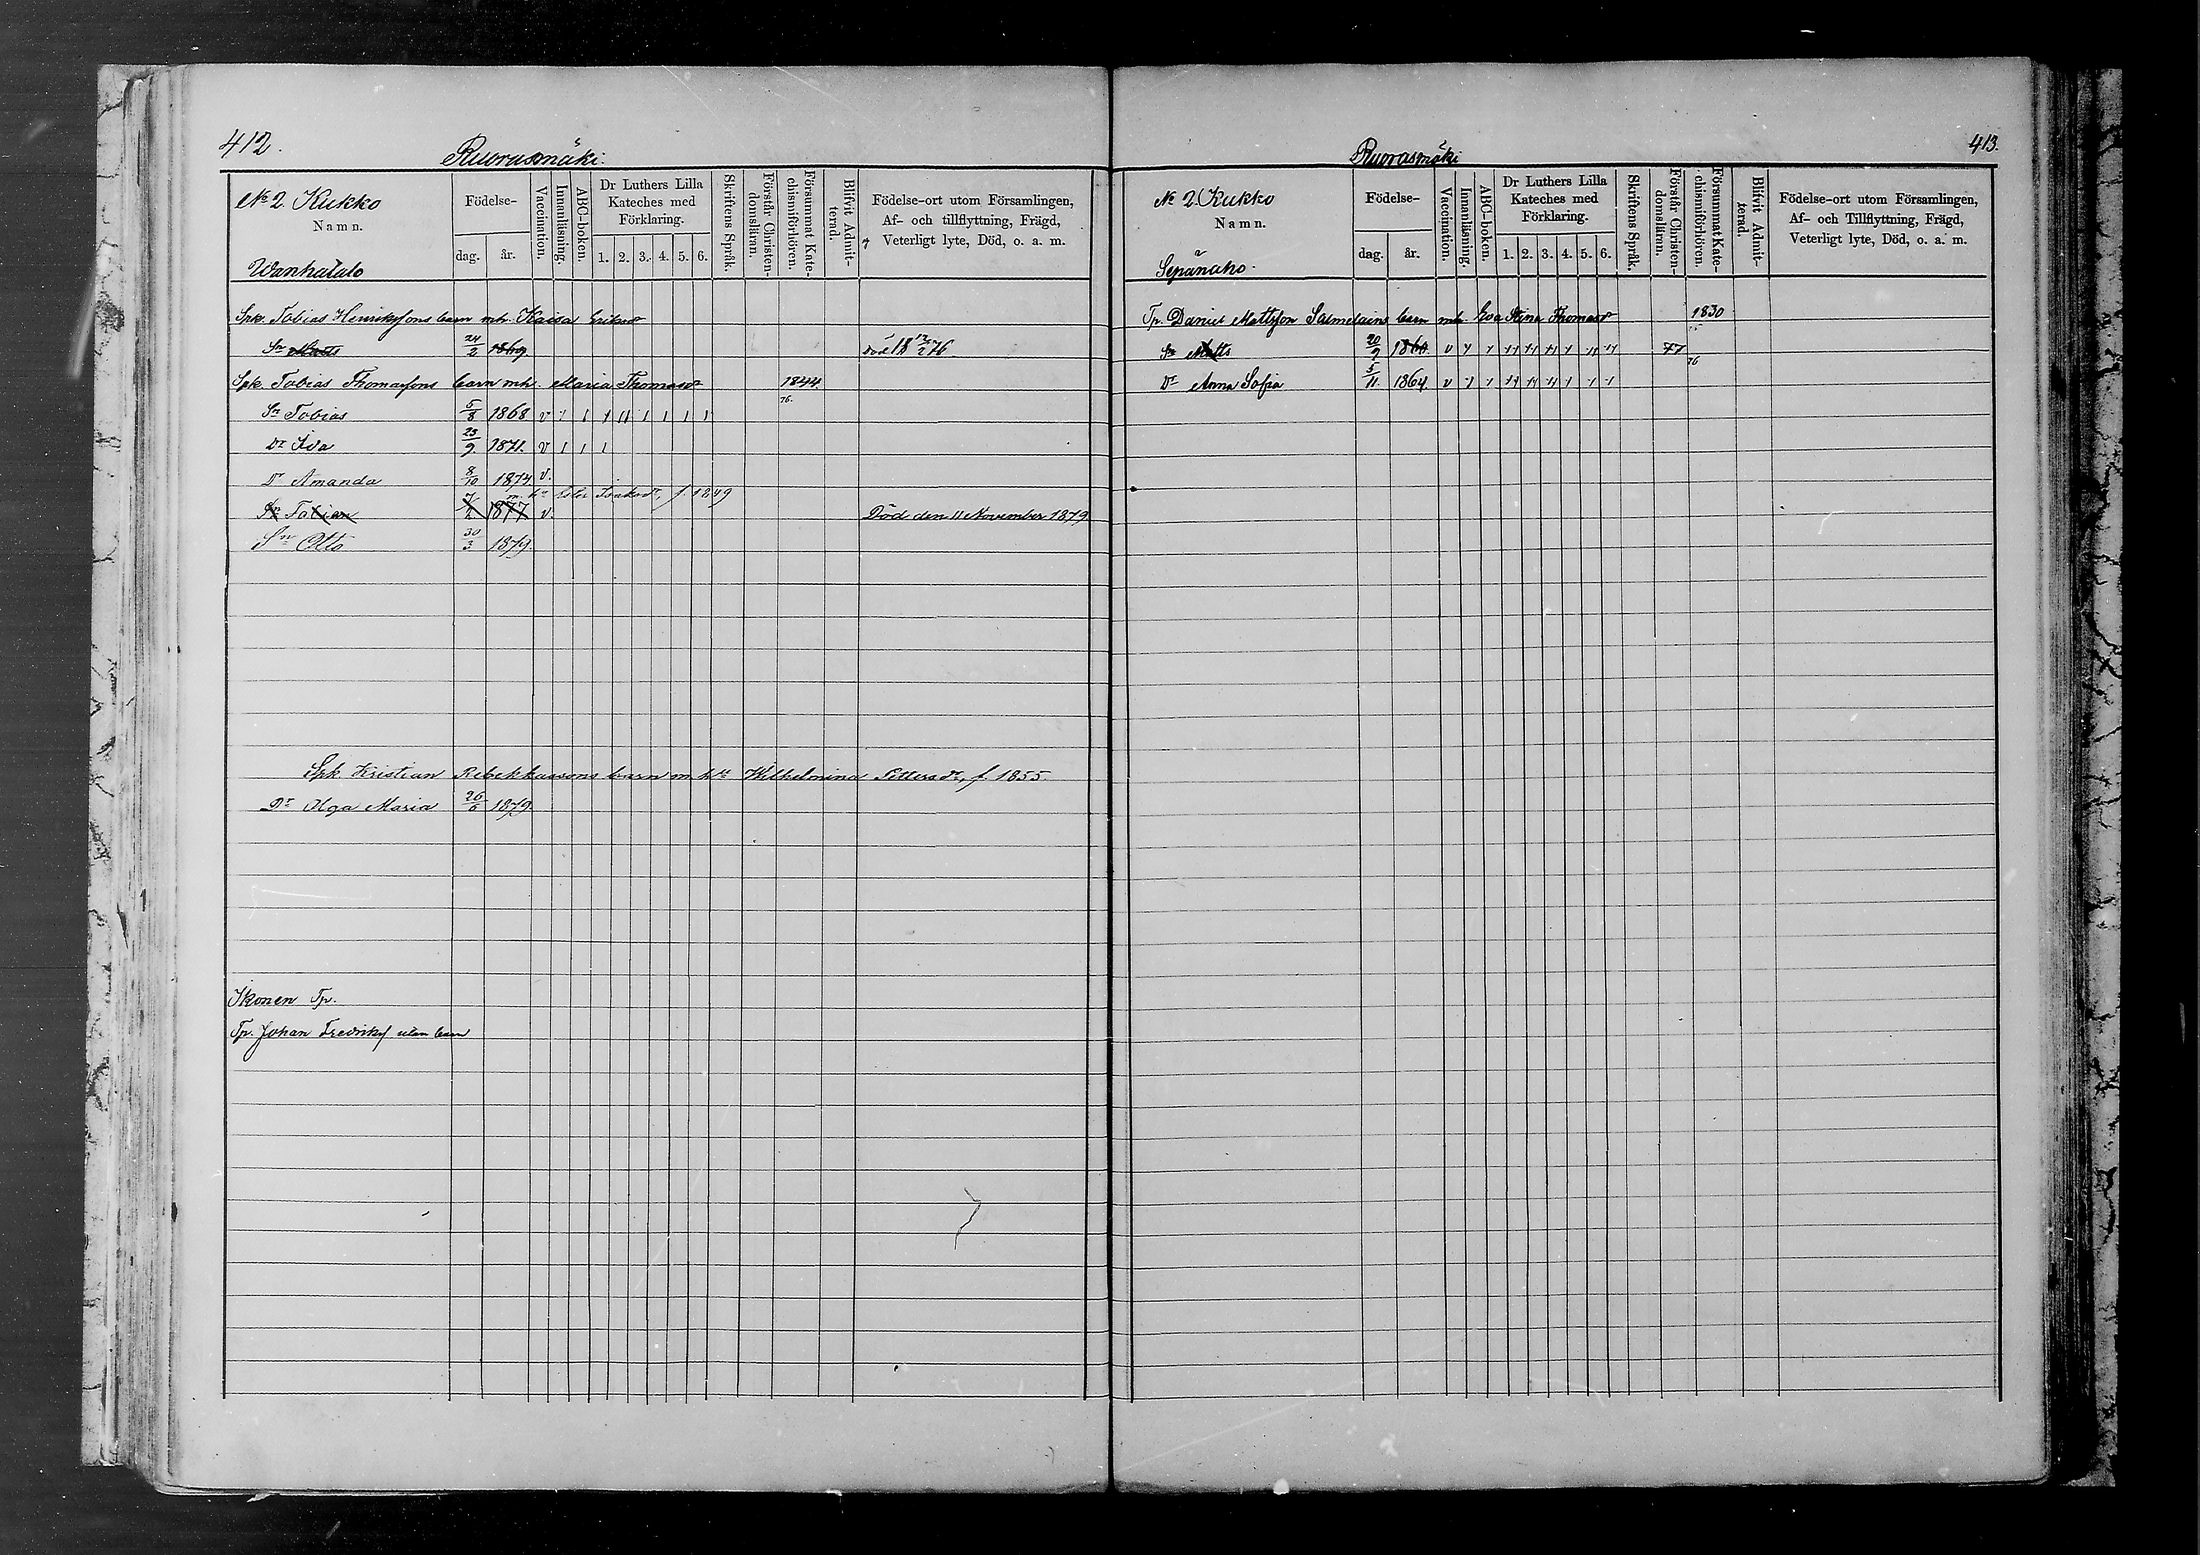 412.
Ruorasmäki.
No 2 Kukko
Namn.
Wanhatalo
Födelse-
dag.
år.
Vaccination.
Innanläsning.
ABC-boken.
Dr Luthers Lilla
Kateches med
Förklaring.
1. 2. 3. 4. 5. 6.
Skriftens Språk.
Förstår Christen-
domsläran.
Försummat Kate-
chismiförhören.
Blifvit Admit-
terad.
Födelse-ort utom Församlingen,
Af- och tillflyttning, Frägd,
Veterligt lyte, Död, o. a. m.
Spk. Tobias Henrikssons barn mh. Kaisa Eriksdr
Sn Matts 24/2 1869 död 18 12/2 76
Spk. Tobias Thomassons barn mh. Maria Thomasdr 1844
76.
Sn Tobias 5/8 1868 v
Dr Ida 23/9 1871. v
Dr Amanda 8/10 1874 v.
m. hu Isaksdr, f. 1849
Sn Tobias 7/2 1877 v. Död den 11 November 1879
Sn Otto 30/3 1879.
Spk Kristian Rebekkassons barn m. hu Wilhelmina Pettersdr, f 1855
Dr Olga Maria 26/6 1879
Ikonen Tp.
Tp. Johan Fredriks utan barn
413.
Ruorasmäki
No 2 Kukko
Namn.
Sepänaho.
Födelse-
dag.
år.
Vaccination.
Innanläsning.
ABC-boken.
Dr Luthers Lilla
Kateches med
Förklaring.
1. 2. 3. 4. 5. 6.
Skriftens Språk.
Förstår Christen-
domsläran.
Försummat Kate-
chismiförhören.
Blifvit Admit-
terad.
Födelse-ort utom Församlingen,
Af- och Tillflyttning, Frägd,
Veterligt lyte, Död, o. a. m.
Tp. Daniel Mattsson Salmelains barn mh. Eva Stina Thomasdr 1830
Sn Matts 20/9 1860 v 77
76
Dr Anna Sofia 5/11. 1864 v